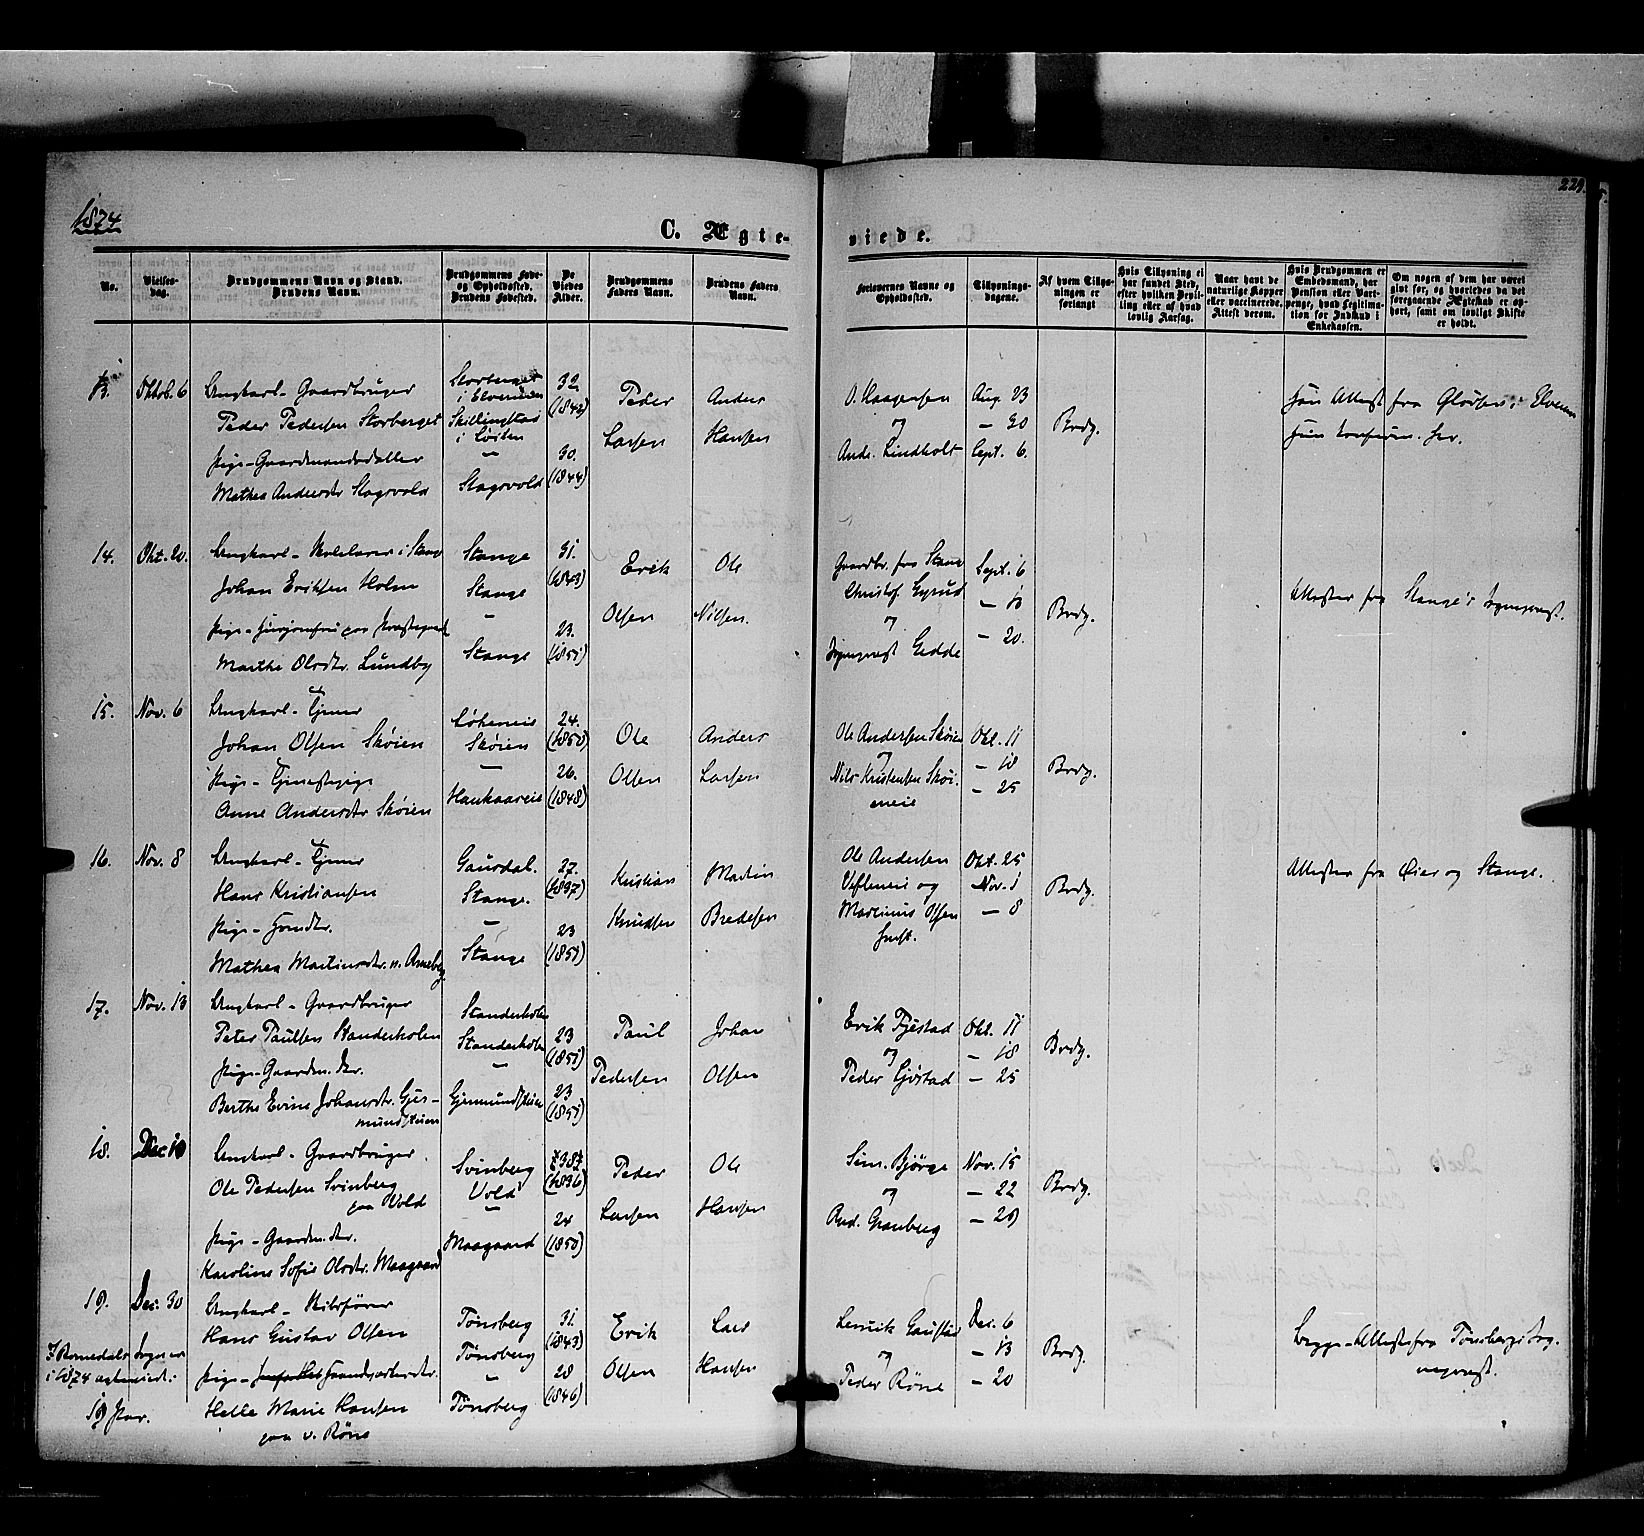 1874
229.
C. Ægte-
viede.
No.
Vielses-
dag.
Brudgommens Navn og Stand.
Brudens Navn.
Brudgommens Føde-
og Opholdssted.
Brudens Fødested.
De
Viedes
Alder.
Brudgommens
Faders Navn.
Brudens Faders
Navn.
Forlovernes Navne og
Opholdssted.
Tillysnings-
dagene.
Af hvem Tillys-
ningen er
forlangt
Hvis Tillysning ei
har fundet Sted,
efter hvilken Bevil-
ling eller af hvad
lovlig Aarsag.
Naar havt de
naturlige Kopper
eller vaccinerede.
Attest derom.
Hvis Brudgommen er
Embedsmand, har
Pension eller Vart-
penge, hvad Legitima-
tion for Indskud i
Enkekassen.
Om nogen af dem har været
gift før, og hvorledes da det
foregaaende Ægteskab er op-
hørt, samt om lovligt Skifte
er holdt.
13. Oktob. 6 Ungkarl - Gaardbruger
Peder Pedersen Storberget
Pige - Gaardmandsdatter
Mathea Andersdtr Skogvold
Storberget
i Elverum
Skillingstad
i Løiten
Skogvold
32.
(1842)
30.
(1844)
Peder
Larsen
Anders
Hansen
O. Haagensen
og
Ands. Lindholt
Aug. 23
— 30
Sept. 6.
Brdg.
Attest fra Elverum
14. Okt. 20. Ungkarl -
Johan Eriksen Holm
Pige -
Marthe Olsdtr. Lundby
Stange
Stange
—
Stange
31.
(1843)
23.
(1851)
Erik
Olsen
Ole
Nilsen.
Gaardbr. fra Stange
Christof. Gyrud
og
Sogneprest Gedde
Sept. 6
— 13
— 20.
Brdg.
Attester fra Stange's Sogneprest.
15. Nov. 6 Ungkarl - Tjener
Johan Olsen Skøien
Pige - Tjenestepige
Anne Andersdtr Skøien
Løkeneie
Skøien
—
Haukaareie
24.
(1850)
26.
(1848)
Ole
Olsen
Anders
Larsen
Ole Andersen Skøien
og
Nils Kristensen Skøi-
eneie
Okt. 11
— 18
— 25
Brdg.
16. Nov. 8 Ungkarl - Tjener
Hans Kristiansen
Pige -
Mathea Martinsdtr. n. Arneberg
Gausdal.
Stange.
—
Stange
27.
23
(1851)
Kristian
Knudsen
Martin
Bredesen
Ole Andersen
og
Martinus Olsen
Okt. 25
Nov. 1
— 8
Brdg.
Attester fra Øier og Stange.
17. Nov. 13 Ungkarl - Gaardbruger
Peter Paulsen Standerholen
Pige - Gaardm. dtr.
Berthe Evine Johansdtr. Gjer-
mundstuen
Standerholen
Standerholen
—
Gjermundstuen
23
(1851)
23
(1851)
Paul
Pedersen
Johan
Olsen
Erik Fjestad
og
Peder Gjøstad
Okt. 11
— 18
— 25
Brdg.
18. Dec 10 Ungkarl - Gaardbruger
Ole Pedersen Svinberg
paa Vold
Pige - Gaardm. dtr.
Karoline Sofie Olsdtr. Maagaard
Svinberg
Vold
—
Maagaard
38
(1836)
24
(1850)
Peder
Larsen
Ole
Hansen
Sim. Bjørge
og
And. Granberg
Nov. 15
— 22
— 29
Brdg.
19. Dec. 30 Ungkarl - Skibsfører
Hans Gustav Olsen
Pige - Gaardejerdtr.
Helle Marie Hansen
paa v. Røne
Tønsberg
Tønsberg
—
Tønsberg
31.
(1843)
28
(1846)
Erik
Olsen
Lars
Hansen
og
Peder Røne
Dec. 6
— 13
— 20
Brdg.
Begges Attest fra Tønsbergs Sog-
neprest.
I Romedals Sogn er
i 1874 ægteviet:
19 Par.